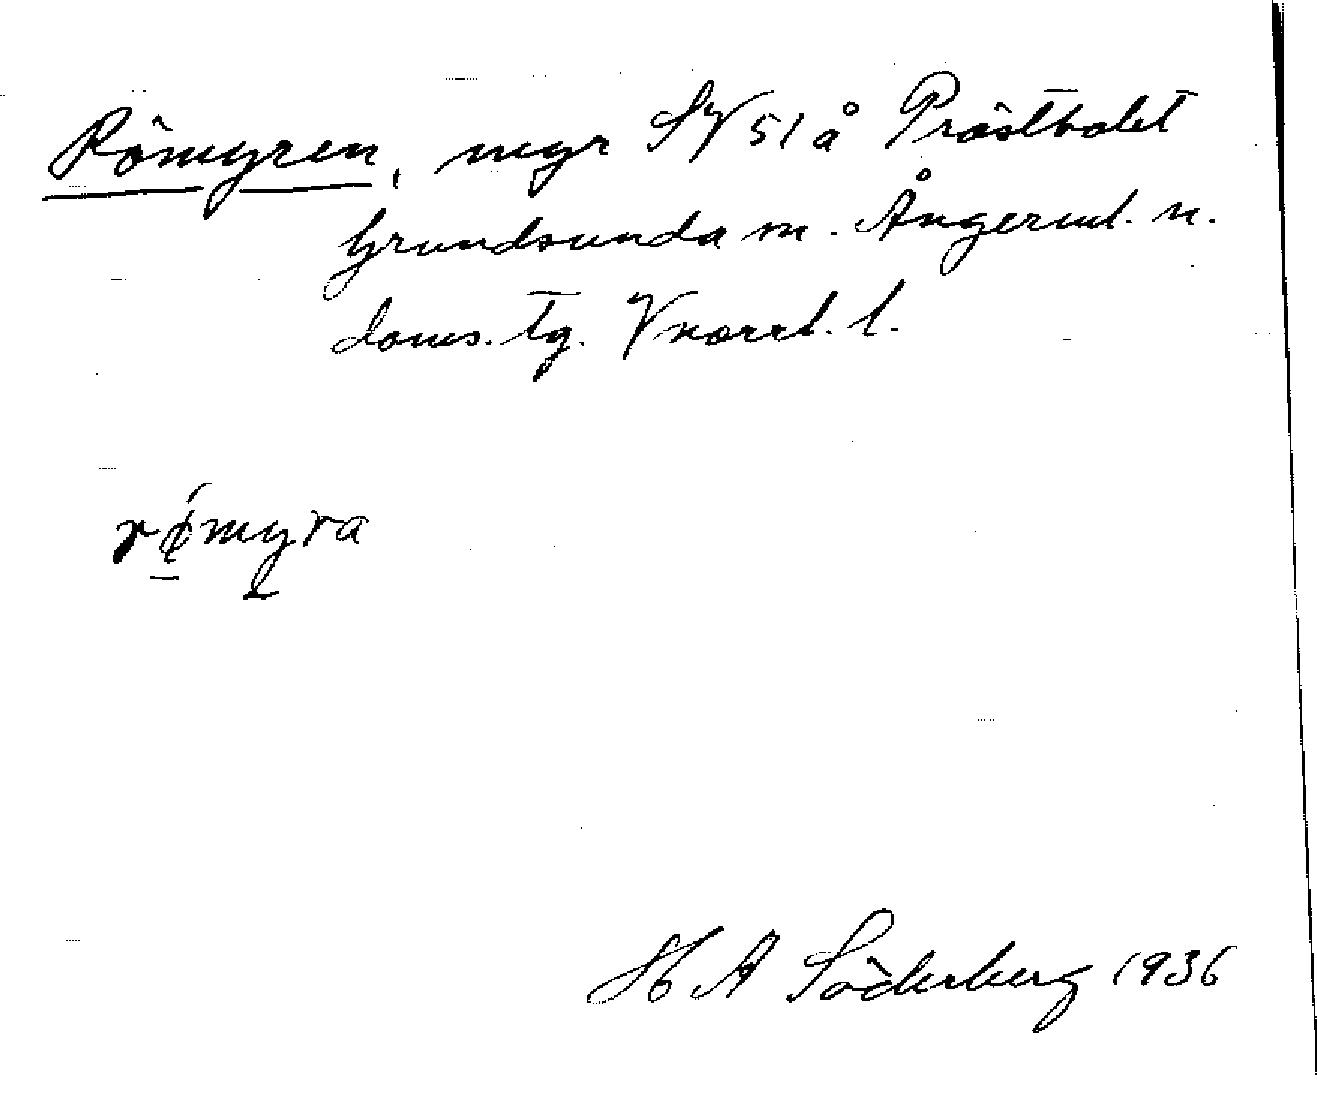 Römyren, myr SV 51 å Prästbolet
Grundsunda sn. Ångerml. n.
doms. tg. Vnorrl. l.
rǿmyra
H A Söderberg 1936